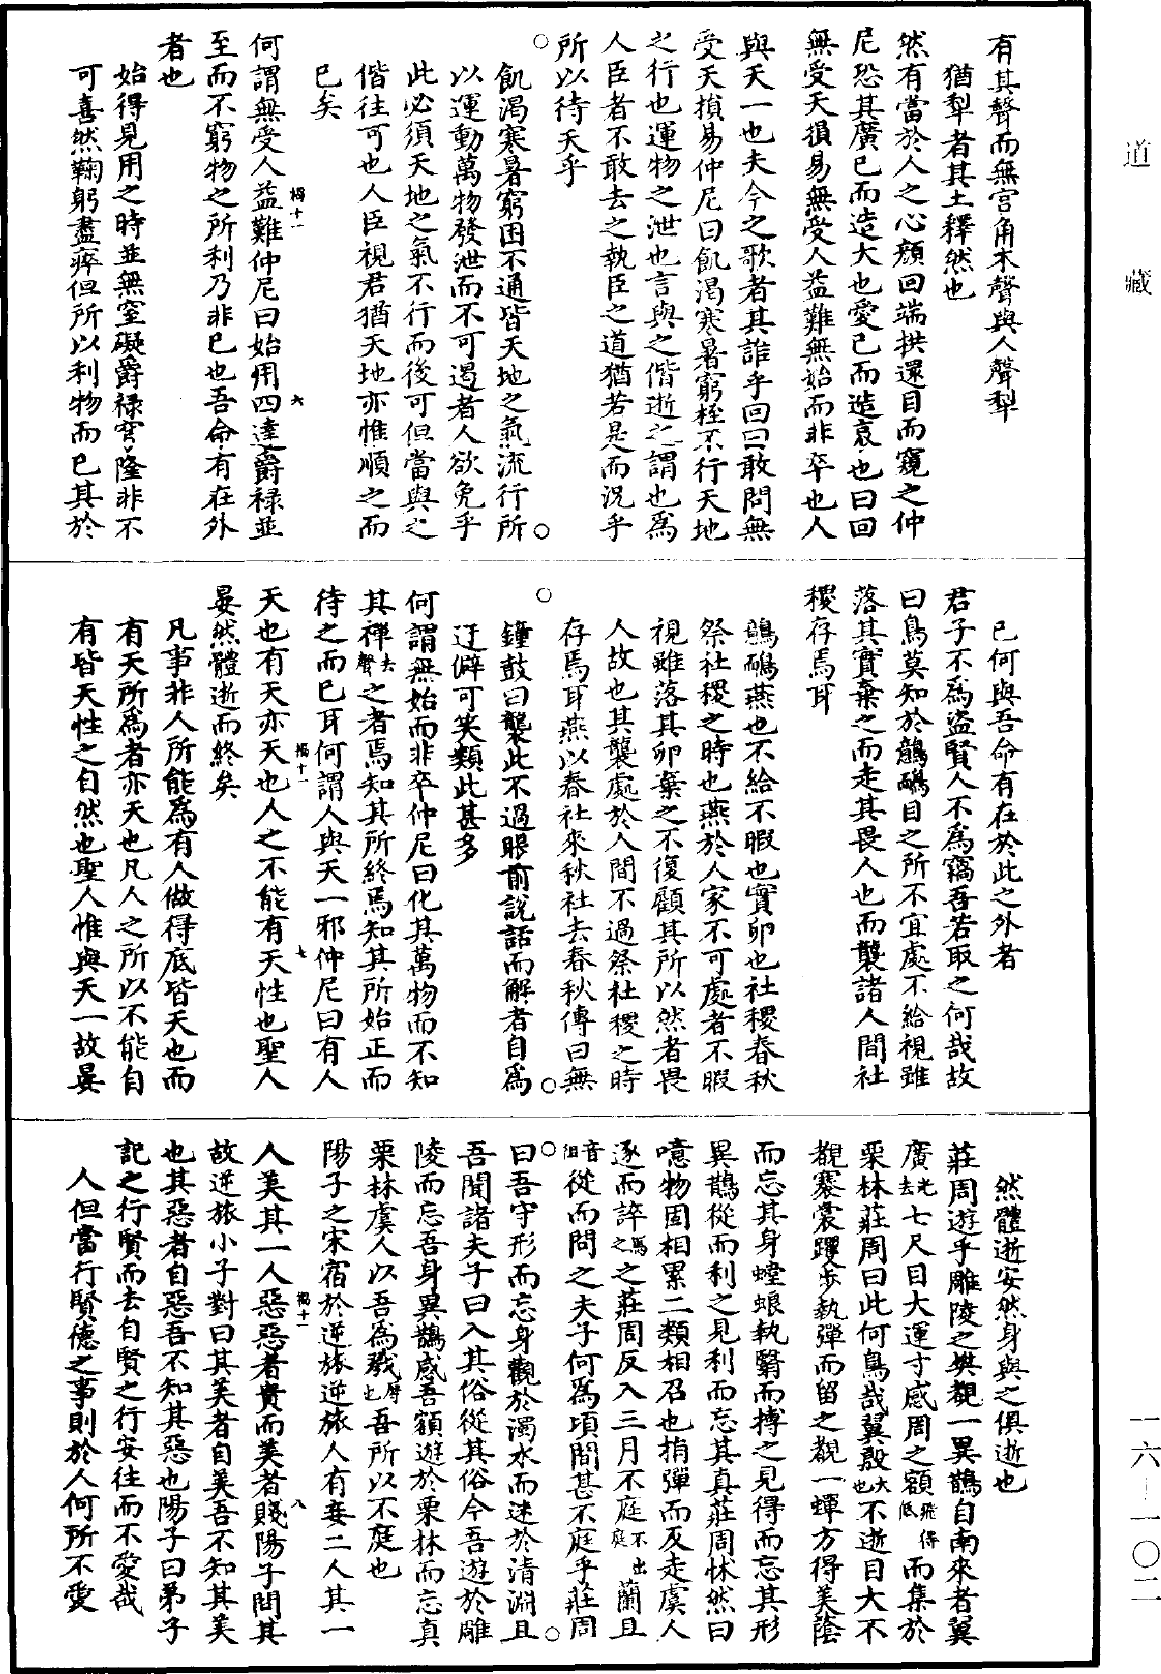 道藏
有其聲而無宮角木聲與人聲犁
猶犁者其土釋然也
然有當於人之心顏回端拱還目而窺之仲
尼恐其廣己而造大也愛己而造哀也曰回
無受天損易無受人益難無始而非卒也人
與天一也夫今之歌者其誰乎回曰敢問無
受天損易仲尼曰飢渴寒暑窮桎不行天地
之行也運物之泄也言與之偕逝之謂也為
人臣者不敢去之執臣之道猶若是而況乎
所以待天乎
○飢渴寒暑窮困不通皆天地之氣流行所○
以運動萬物發泄而不可遏者人欲免乎
此必須天地之氣不行而後可但當與之
偕往可也人臣視君猶天地亦惟順之而
已矣
何謂無受人益難仲尼曰始用四達爵祿並
至而不窮物之所利乃非己也吾命有在外
者也
始得見用之時並無窒礙爵祿穹隆非不
可喜然鞠躬盡瘁但所以利物而已其於
己何與吾命有在於此之外者
君子不為盜賢人不為竊吾若取之何哉故
曰鳥莫知於鷾鴯目之所不宜處不給視雖
落其實棄之而走其畏人也而襲諸人間社
稷存焉耳
鷾鴯燕也不給不暇也實卵也社稷春秋
祭社稷之時也燕於人家不可處者不暇
視雖落其卵棄之不復顧其所以然者畏
人故也其襲處於人間不過祭社稷之時
存焉耳燕以春社來秋社去春秋傳曰無
○鐘鼓曰襲此不過眼前說話而解者自為○
迂僻可笑類此甚多
何謂無始而非卒仲尼曰化其萬物而不知
其禪去聲之者焉知其所終焉知其所始正而
待之而已耳何謂人與天一邪仲尼曰有人
天也有天亦天也人之不能有天性也聖人
晏然體逝而終矣
凡事非人所能為有人做得底皆天也而
有天所為者亦天也凡人之所以不能自
有皆天性之自然也聖人惟與天一故晏
然體逝安然身與之俱逝也
莊周遊乎雕陵之樊覩一異鵲自南來者翼
廣光去七尺目大運寸感周之顙飛得低而集於
栗林莊周曰此何鳥哉翼殷大也不逝目大不
覩褰裳躩步執彈而留之覩一蟬方得美蔭
而忘其身螳蜋執翳而搏之見得而忘其形
異鵲從而利之見利而忘其真莊周怵然曰
噫物固相累二類相召也捐彈而反走虞人
逐而誶罵之之莊周反入三月不庭不出庭藺且
音沮從而問之夫子何為頃間甚不庭乎莊周
○曰吾守形而忘身觀於濁水而迷於清淵且○
吾聞諸夫子曰入其俗從其俗今吾遊於雕
陵而忘吾身異鵲感吾顙遊於栗林而忘真
栗林虞人以吾為戮辱也吾所以不庭也
陽子之宋宿於逆旅逆旅人有妾二人其一
人美其一人惡惡者貴而美者賤陽子問其
故逆旅小子對曰其美者自美吾不知其美
也其惡者自惡吾不知其惡也陽子曰弟子
記之行賢而去自賢之行安往而不愛哉
人但當行賢德之事則於人何所不愛
一六—一〇二